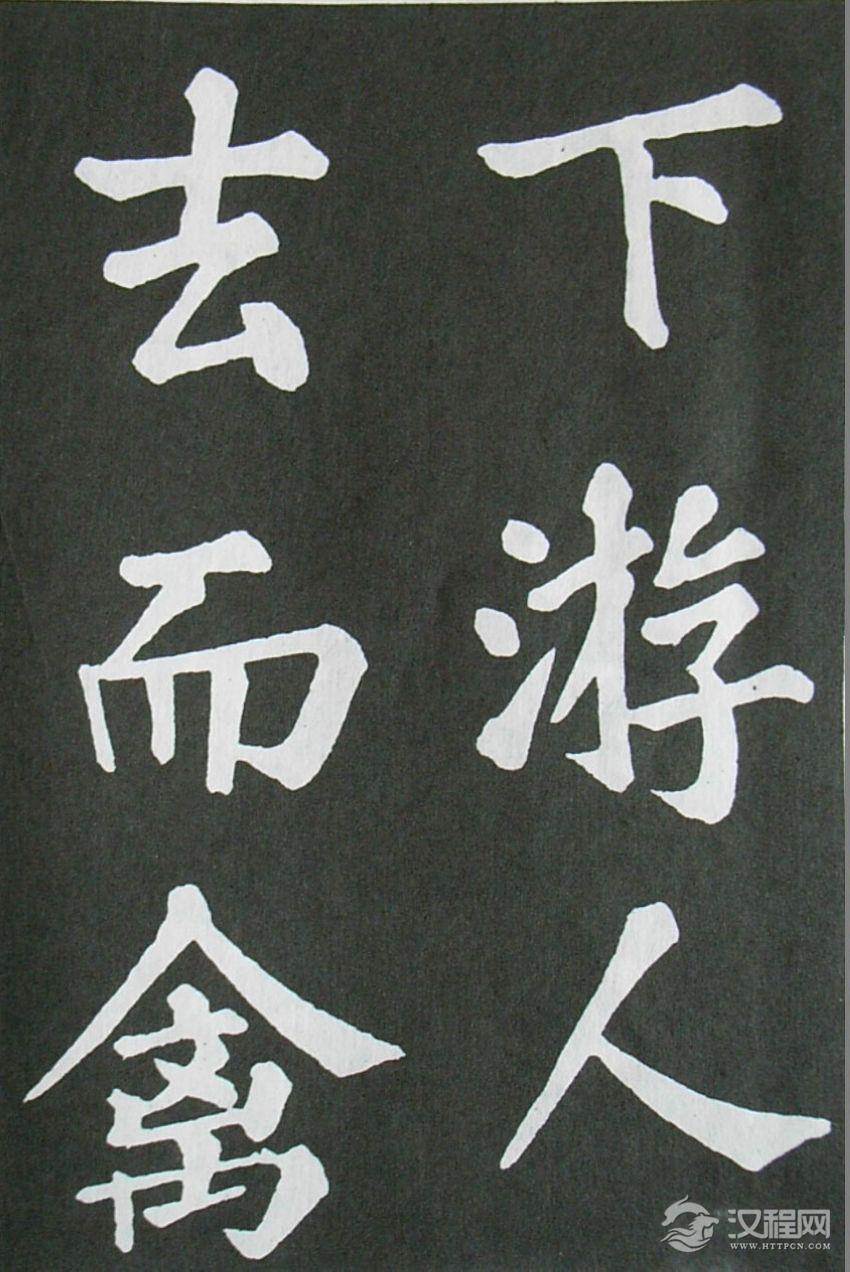 下游人
去而禽
汉程网
WWW.HTTPCN.COM